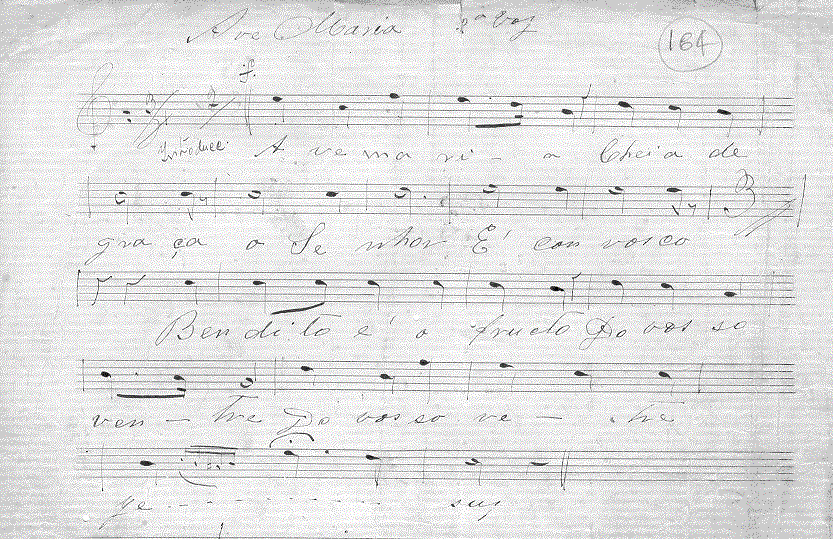 Ave Maria 2ª Voz
164
A ve ma ri - a Cheia de
gra ça o Se nhor É con vosco
Ben di to é o fructo Do vos so
ven - tre Do vos so ve - tre
Je - - - - - - - - sus